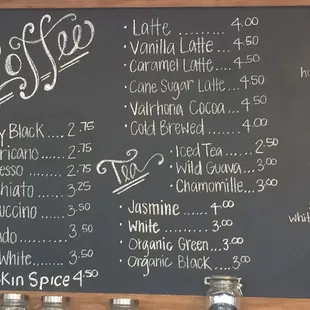 Coffee
y Black ..... 2.75
ricano ..... 2.75
esso ..... 2.75
hiato ..... 3.25
uccino ..... 3.50
ado ..... 3.50
White ..... 3.50
kin Spice 4.50
· Latte ......... 4.00
· Vanilla Latte ... 4.50
· Caramel Latte ... 4.50
· Cane Sugar Latte ... 4.50
· Valrhona Cocoa ... 4.50
· Cold Brewed ..... 4.00
Tea
· Iced Tea ..... 2.50
· Wild Guava ... 3.00
· Chamomille ... 3.00
· Jasmine ..... 4.00
· White ........ 3.00
· Organic Green ... 3.00
· Organic Black .... 3.00